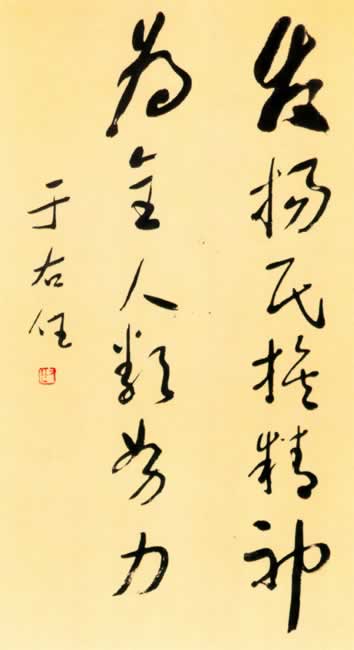 发扬民族精神
为全人类努力
于右任